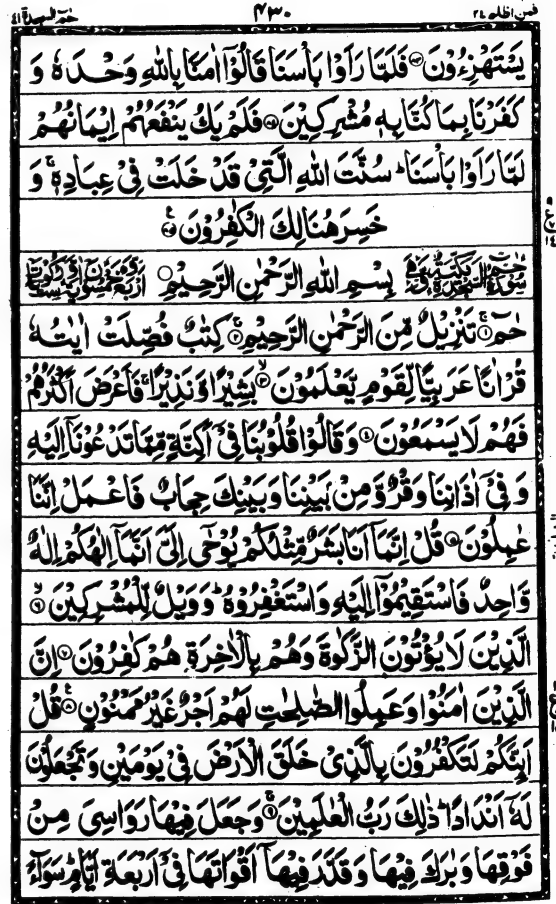 فمن اظلم ٢٤ ٤٣٠ حٰمٓ السجدة ٤١
يَسْتَهْزِءُوْنَ ﴿٨٣﴾ فَلَمَّا رَاَوْا بَاْسَنَا قَالُوْٓا اٰمَنَّا بِاللّٰهِ وَحْدَهٗ وَ
كَفَرْنَا بِمَا كُنَّا بِهٖ مُشْرِكِيْنَ ﴿٨٤﴾ فَلَمْ يَكُ يَنْفَعُهُمْ اِيْمَانُهُمْ
لَمَّا رَاَوْا بَاْسَنَا ؕ سُنَّتَ اللّٰهِ الَّتِيْ قَدْ خَلَتْ فِيْ عِبَادِهٖ ۚ وَ
خَسِرَ هُنَالِكَ الْكٰفِرُوْنَ ﴿٨٥﴾
بِسْمِ اللّٰهِ الرَّحْمٰنِ الرَّحِيْمِ
حٰمٓ ﴿١﴾ تَنْزِيْلٌ مِّنَ الرَّحْمٰنِ الرَّحِيْمِ ﴿٢﴾ كِتٰبٌ فُصِّلَتْ اٰيٰتُهٗ
قُرْاٰنًا عَرَبِيًّا لِّقَوْمٍ يَّعْلَمُوْنَ ﴿٣﴾ بَشِيْرًا وَّنَذِيْرًا ۚ فَاَعْرَضَ اَكْثَرُهُمْ
فَهُمْ لَا يَسْمَعُوْنَ ﴿٤﴾ وَقَالُوْا قُلُوْبُنَا فِيْٓ اَكِنَّةٍ مِّمَّا تَدْعُوْنَآ اِلَيْهِ
وَفِيْٓ اٰذَانِنَا وَقْرٌ وَّمِنْۢ بَيْنِنَا وَبَيْنِكَ حِجَابٌ فَاعْمَلْ اِنَّنَا
عٰمِلُوْنَ ﴿٥﴾ قُلْ اِنَّمَآ اَنَا بَشَرٌ مِّثْلُكُمْ يُوْحٰٓى اِلَيَّ اَنَّمَآ اِلٰهُكُمْ اِلٰهٌ
وَّاحِدٌ فَاسْتَقِيْمُوْٓا اِلَيْهِ وَاسْتَغْفِرُوْهُ ؕ وَوَيْلٌ لِّلْمُشْرِكِيْنَ ﴿٦﴾
الَّذِيْنَ لَا يُؤْتُوْنَ الزَّكٰوةَ وَهُمْ بِالْاٰخِرَةِ هُمْ كٰفِرُوْنَ ﴿٧﴾ اِنَّ
الَّذِيْنَ اٰمَنُوْا وَعَمِلُوا الصّٰلِحٰتِ لَهُمْ اَجْرٌ غَيْرُ مَمْنُوْنٍ ﴿٨﴾ قُلْ
اَئِنَّكُمْ لَتَكْفُرُوْنَ بِالَّذِيْ خَلَقَ الْاَرْضَ فِيْ يَوْمَيْنِ وَتَجْعَلُوْنَ
لَهٗٓ اَنْدَادًا ؕ ذٰلِكَ رَبُّ الْعٰلَمِيْنَ ﴿٩﴾ وَجَعَلَ فِيْهَا رَوَاسِيَ مِنْ
فَوْقِهَا وَبٰرَكَ فِيْهَا وَقَدَّرَ فِيْهَآ اَقْوَاتَهَا فِيْٓ اَرْبَعَةِ اَيَّامٍ ؕ سَوَآءً